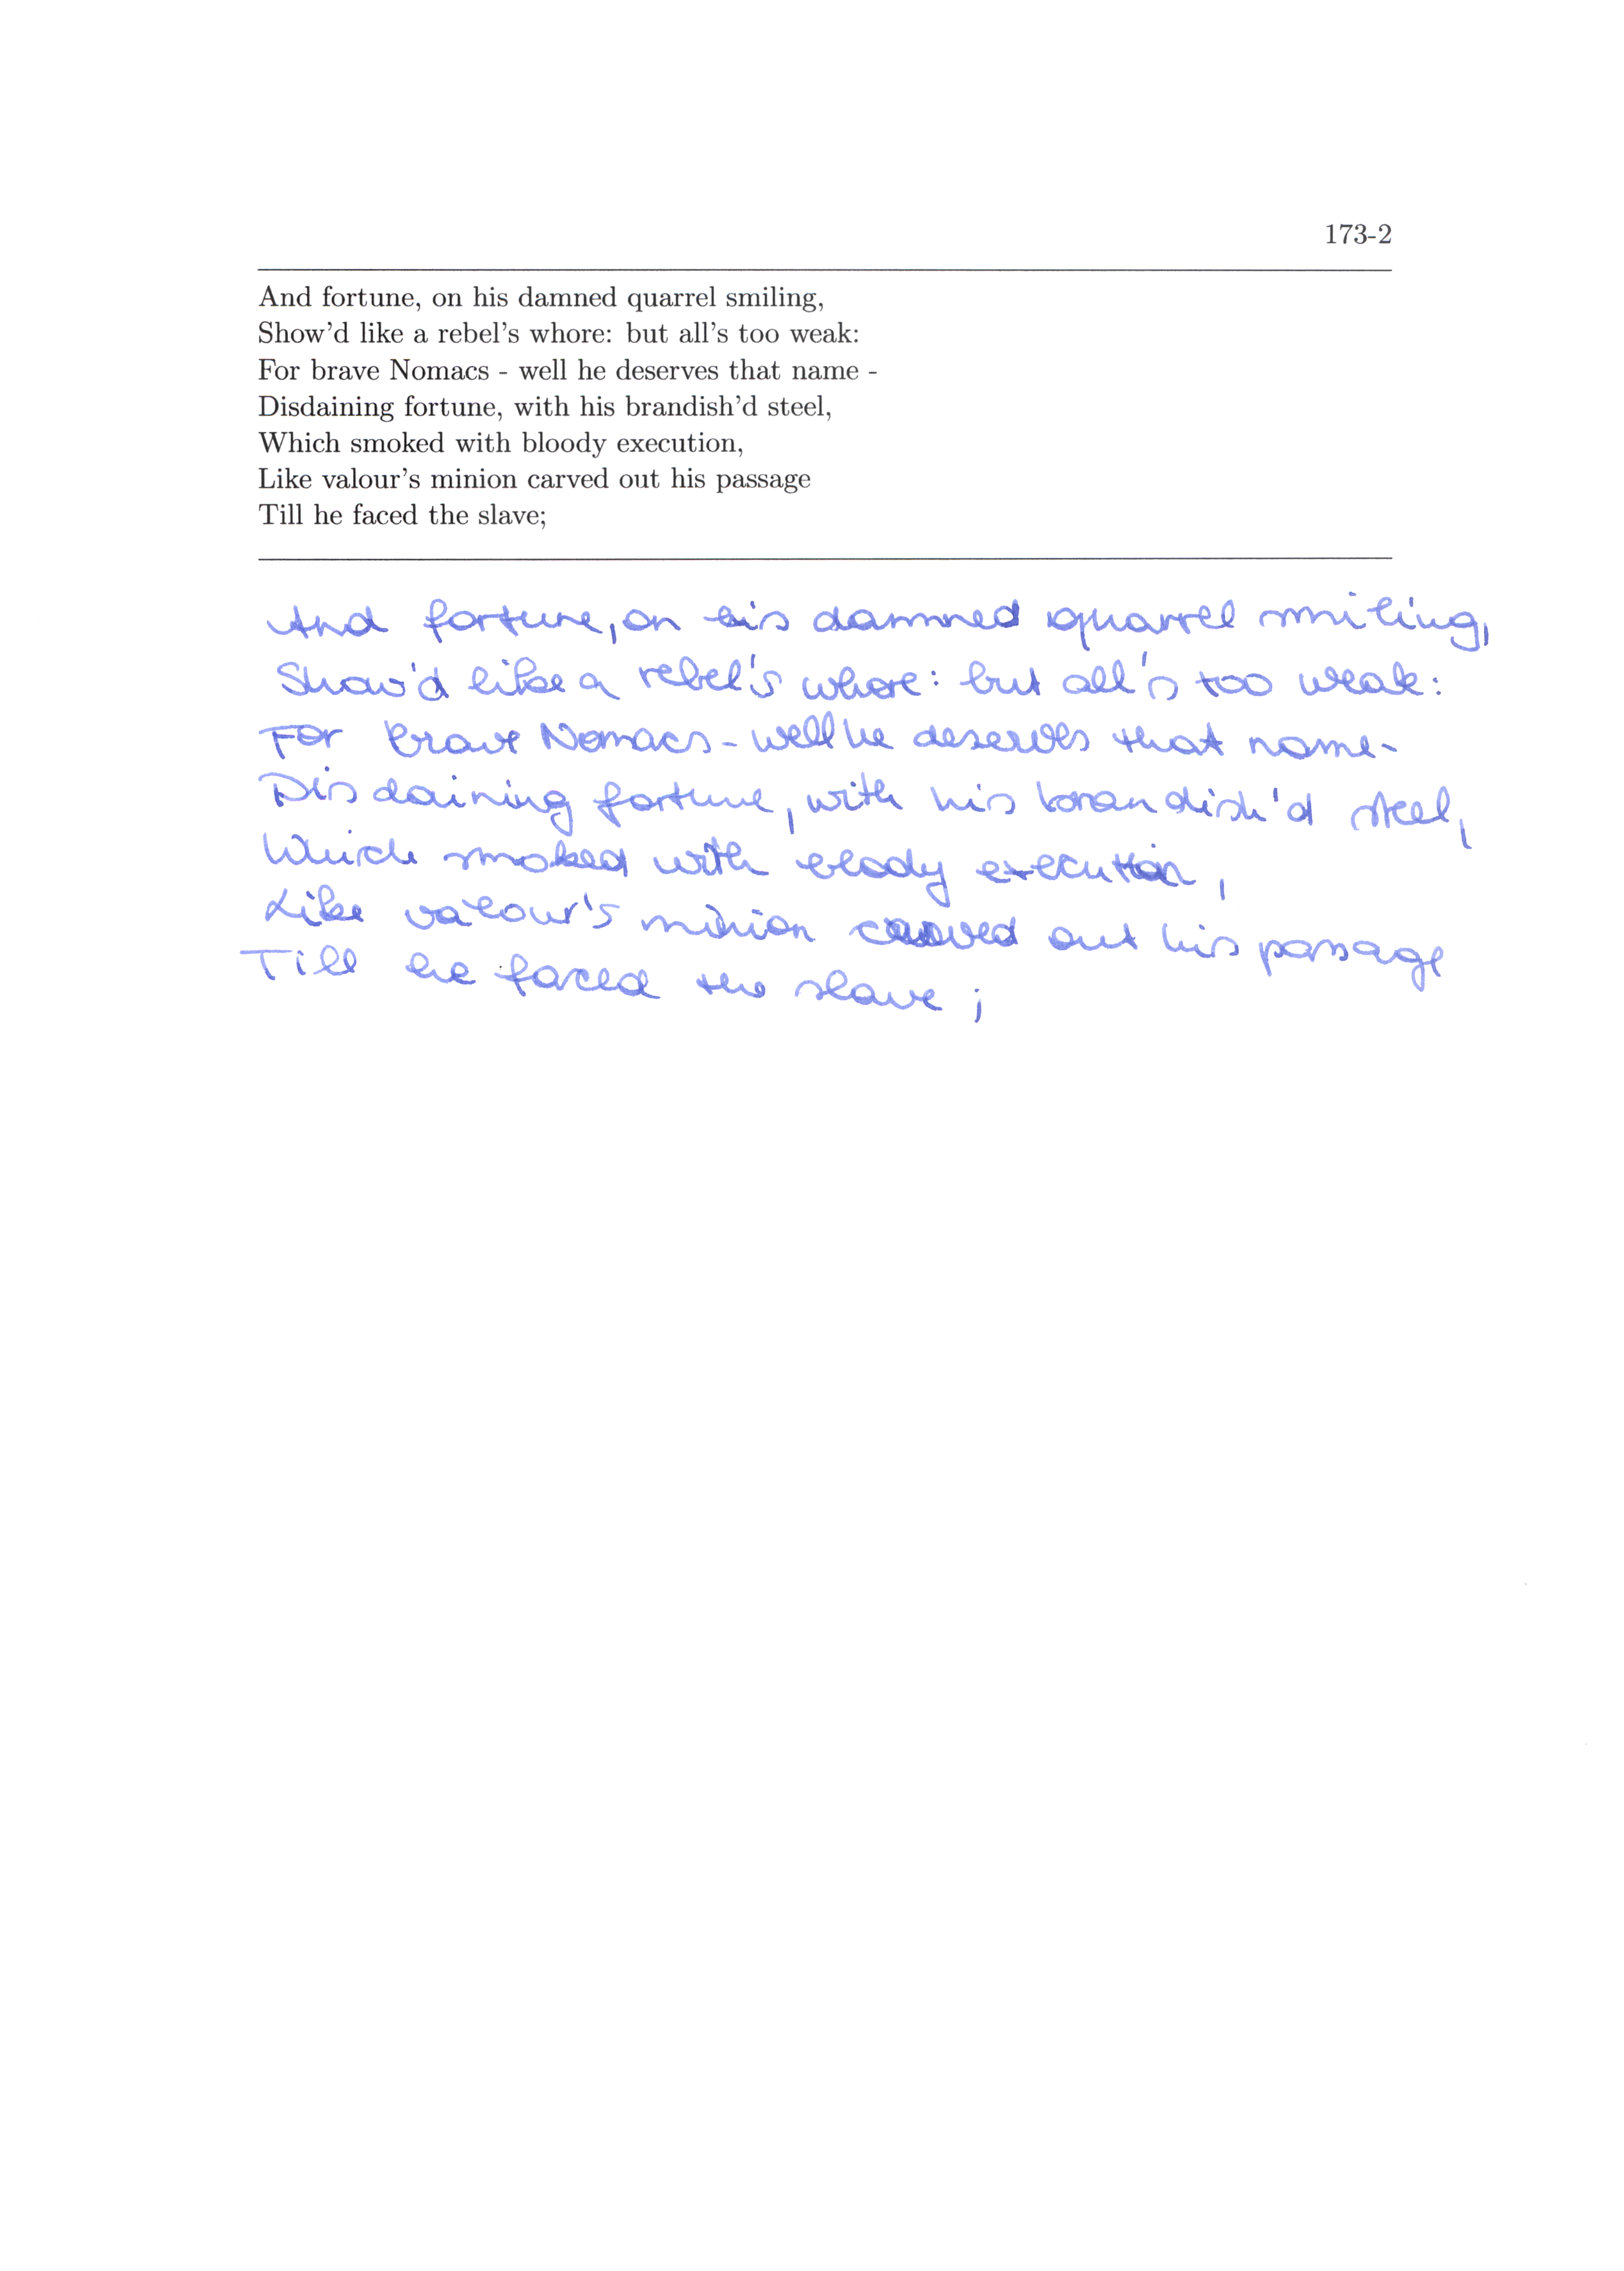 173-2
And fortune, on his damned quarrel smiling,
Show'd like a rebel's whore: but all's too weak:
For brave Nomacs - well he deserves that name -
Disdaining fortune, with his brandish'd steel,
Which smoked with bloody execution,
Like valour's minion carved out his passage
Till he faced the slave;
And fortune, on his damned quarrel smiling,
Show'd like a rebel's whore: but all's too weak:
For brave Nomacs - well he deserves that name-
Disdaining fortune, with his brandish'd steel,
Which smoked with bloody execution,
Like valour's minion carved out his passage
Till he faced the slave;